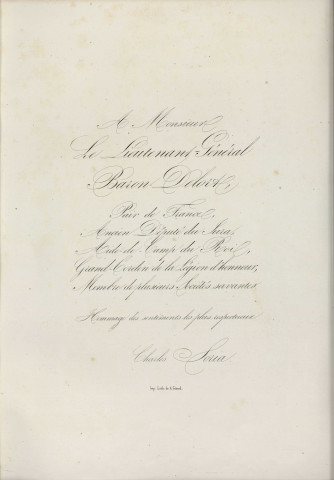 A Monsieur
Le Lieutenant-Général
Baron Delort,
Pair de France,
Ancien Député du Jura,
Aide de Camp du Roi,
Grand Cordon de la Légion d'honneur,
Membre de plusieurs Sociétés savantes
Hommage des sentiments les plus respectueux
Charles Soria